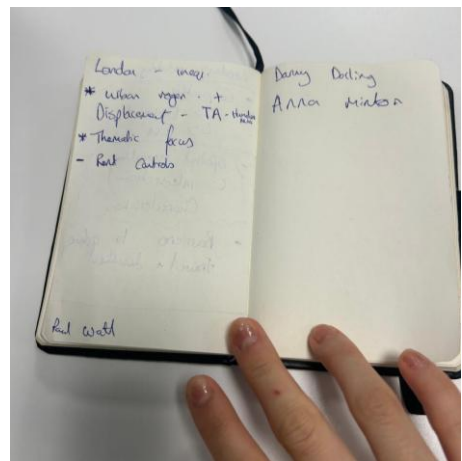 London - ineq.
* Urban regen. +
Displacement - TA -
* Thematic focus
- Rent Controls
Paul Watt
Danny Dorling
Anna Minton